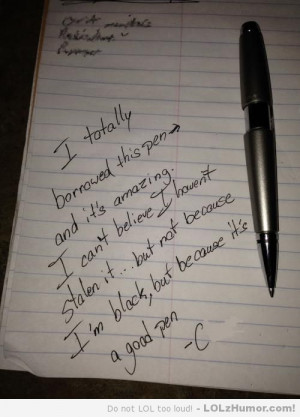 I totally
borrowed this pen→
and it's amazing.
I can't believe I haven't
stolen it... but not because
I'm black, but because it's
a good pen
-C
Do not LOL too loud! - LOLzHumor.com!